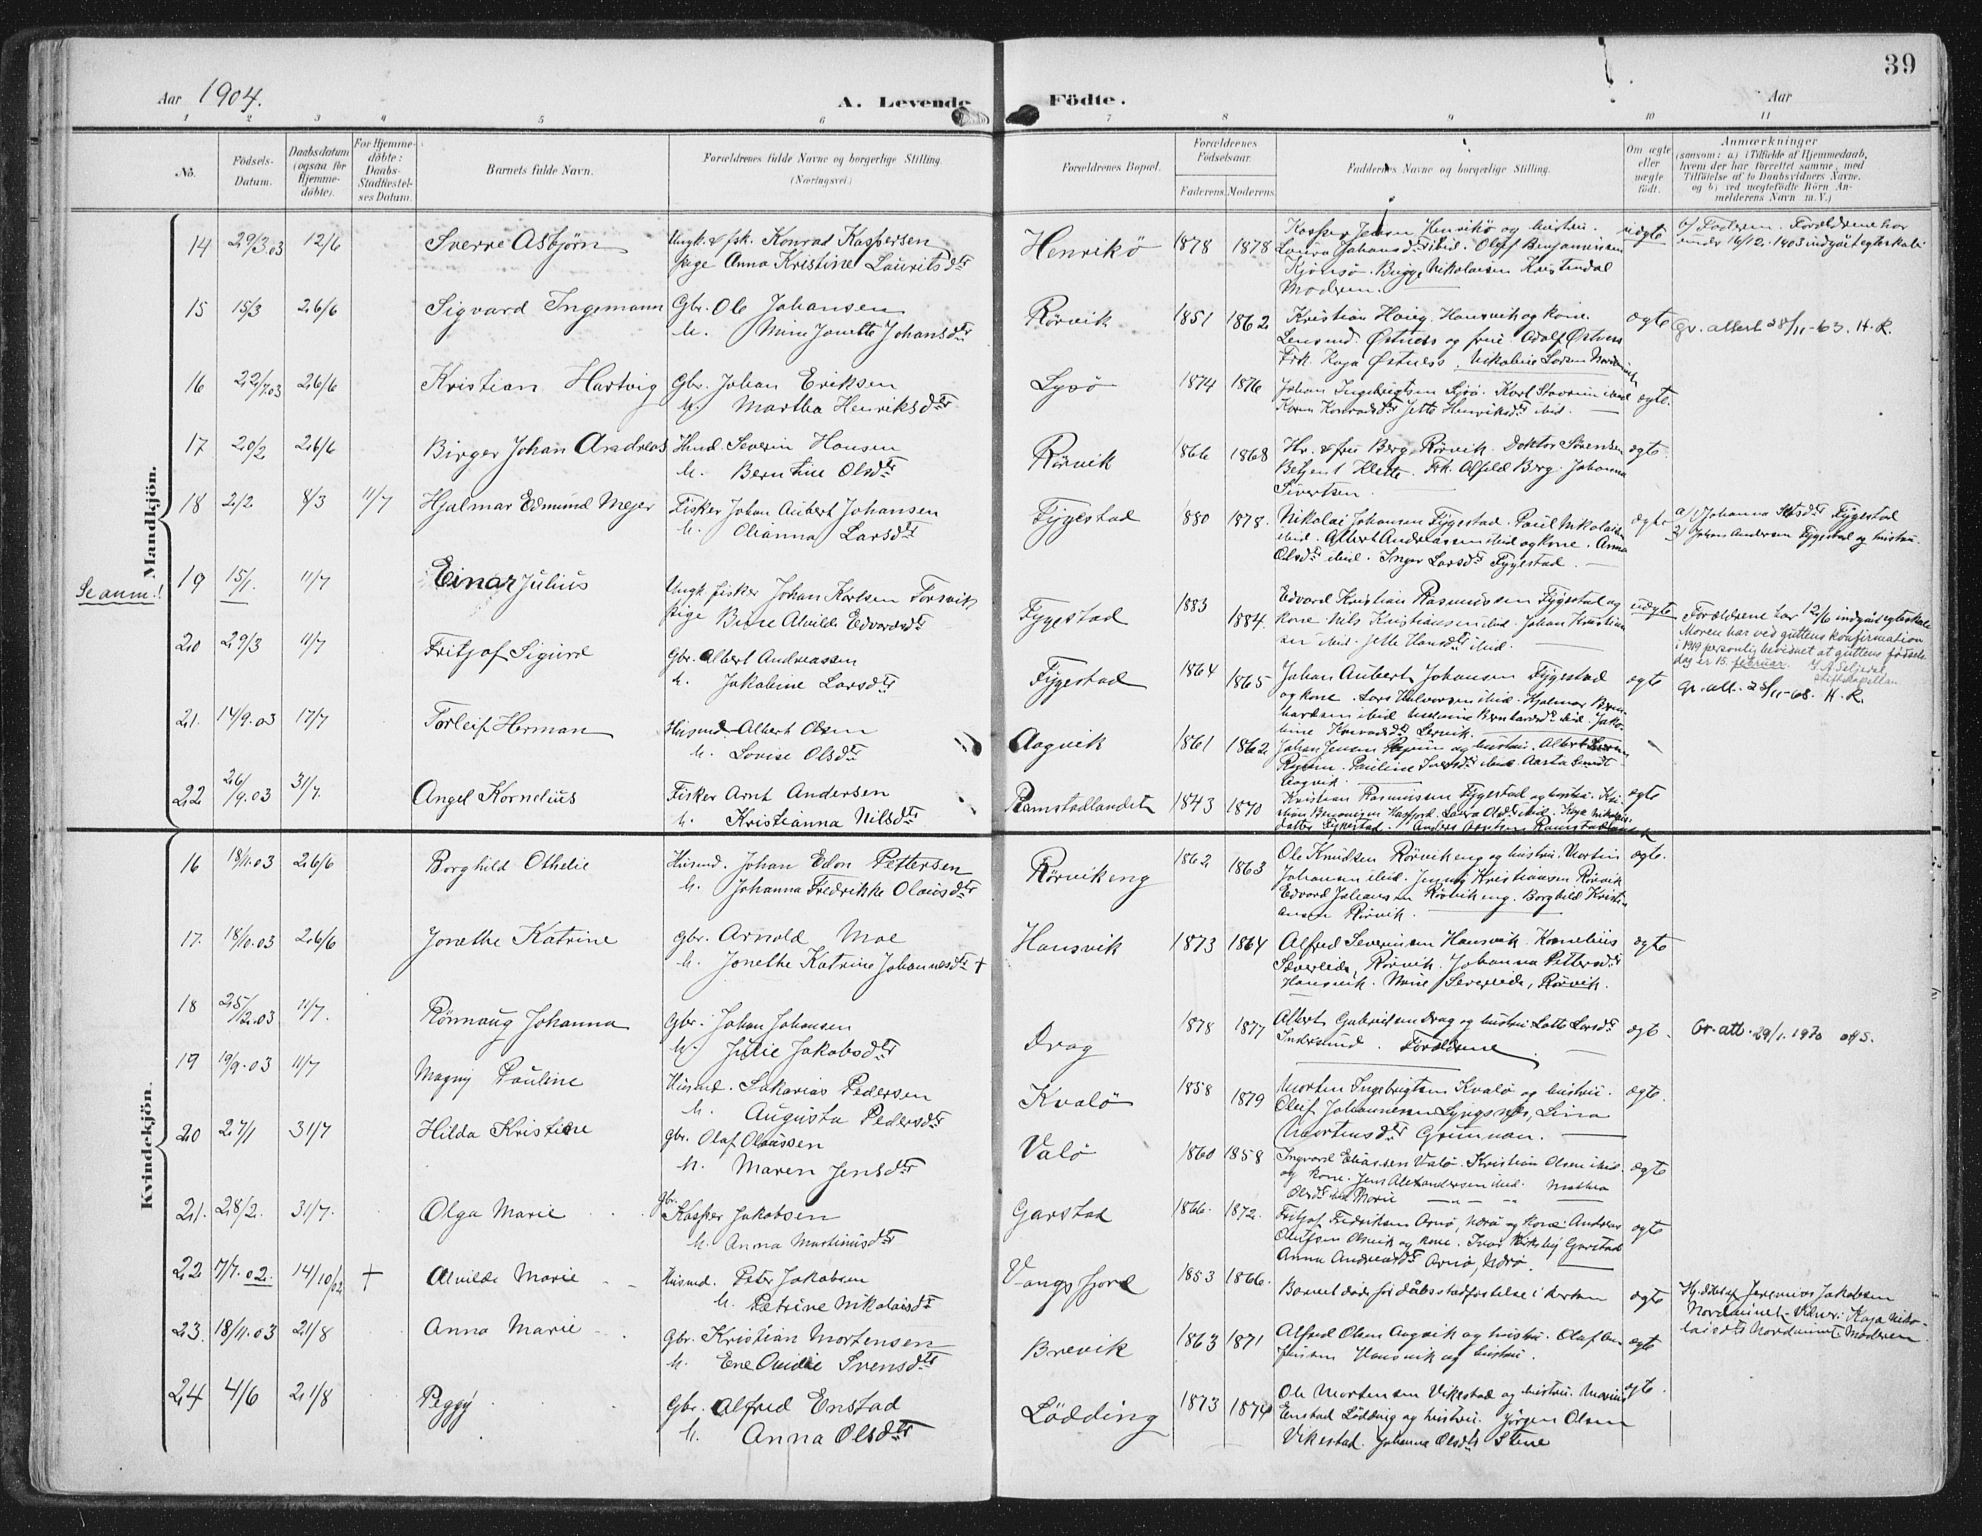 39
Aar 1904.
A. Levende Födte.
Aar
1 2 3 4 5 6 7 8 9 10 11
No.
Födsels-Datum.
Daabsdatum (ogsaa for Hjemmedöbte).
For Hjemmedöbte: Daabs-Stadfæstelses Datum.
Barnets fulde Navn.
Forældrenes fulde Navne og borgerlige Stilling. (Næringsvei.)
Forældrenes Bopæl.
Forældrenes Födselsaar.
Faderens. Moderens.
Faddernes Navne og borgerlige Stilling.
Om ægte eller uægte födt.
Anmærkninger
(saasom: a) i Tilfælde af Hjemmedaab, hvem der har forrettet samme, med Tilföielse af to Daabsvidners Navne. og b) ved uægtefödte Börn Anmelderens Navn m. V.)
Mandkjön.
14 29/3.03 12/6 Sverre Asbjörn
Ungk. & fsk. Konrad Kaspersen
Pige Anna Kristine Lauritsdtr
Henrikö 1878 1878
Kasper Jensen Henrikö og hustru.
Laura Johansdtr ibid. Olaf Benjaminsen
Kjönsö. Bugge Nikolaisen Kristendal
Moderen.
uægte
b) Faderen. Forældrene har
under 16/12.1903 indgaat egteskab
15 15/3 26/6 Sigvard Ingemann
Gbr. Ole Johansen
h. Mine Jonette Johansdtr
Rörvik 1851 1862
Kristian Haug, Hansvik og kone.
Lensmd. Östnes og frue. Adolf Östnes
Frk. Kaja Östnes.
ægte
gr. attest 28/11-63. H.R.
16 22/7.03 26/6 Kristian Hartvig
Gbr. Johan Eriksen
h. Martha Henriksdtr
Lysö 1874 1876
Johan Ingebrigtsen Lysö. Karl Stavrum ibid
Karen Konradsdtr Jette Henriksdtr ibid.
ægte.
17 20/2 26/6 Birger Johan Andreas
Husmd. Severin Hansen
h. Berntine Olsdtr
Rörvik 1866 1868
Hr. & fru Berg, Rörvik. Doktor Sörensen
Betjent Klette. Frk. Alfild Berg. Johanna
Sivertsen.
ægte
18 2/2 8/3 11/7 Hjalmar Edmund Mejer
Fisker Johan Aubert Johansen
h. Olianna Larsdtr
Fygestad 1880 1878.
Nikolai Johansen Fygestad. Paul Nikolaisen
ibid. Albert Andreassen ibid og kone. Anna
Olsdtr ibid. Inger Larsdtr Fygestad.
ægte
a) 1) Johanna Olsdtr Fygestad
2) Johan Andersen Fygestad og hustru.
Se anm.!
19 15/1. 11/7 Einar Julius
Ungk. fisker Johan Karlsen Forsvik
Pige Bine Alvilde Edvardsdtr
Fygestad 1883 1884
Edvard Kristian Rasmussen Fygestad og
kone. Nils Kristiansen ibid. Johan Kristian
sen ibid. Jette Hansdtr ibid.
uægte
Forældrene har 12/6 indgaat egteskab
Moren har ved guttens konfirmation
i 1919 personlig bevidnet at guttens födsels
dag er 15. februar. J. A. Seljedal
stiftskapellan
20 29/3 11/7 Fritjof Sigurd
Gbr. Albert Andreassen
h. Jakobine Larsdtr
Fygestad 1864 1865
Johan Aubert Johansen Fygestad
og kone. Lars Halvorsen ibid. Hjalmar Bern
hardsen ibid. Bernhardsdtr ibid. Jako
bine Konradsdtr Lervik.
ægte
gr. att. 23/11-68. H.R.
21. 14/9.03 17/7 Torleif Herman
Husmd. Albert Olsen
h. Lovise Olsdtr
Aagvik 1861 1862
Johan Jensen og hustru. Albert
Pauline ibid. Aasta
Aagvik.
22 26/9.03 31/7. Angel Kornelius
Fisker Arnt Andersen
h. Kristianna Nilsdtr
Ramstadlandet 1843 1870
Kristian Rasmussen Fygestad og hustru.
Laura Olsdtr ibid. Kaja Nikolai
datter Fygestad. Anders Ramstadlandet
ægte
Kvindekjön.
16 13/11.03 26/6 Borghild Othelie
Husmd. Johan Edon Pettersen
h. Johanna Fredrikke Olaisdtr
Rörvikeng 1862 1863
Ole Knudsen Rörvikeng og hustru. Martin
Johansen ibid. Jenny Kristiansen Rörvik
Edvard Johansen Rörvikeng. Borghild Kristi
ansen Rörvik.
ægte.
17. 18/10.03 26/6 Jonethe Katrine
gbr. Arnold Moe
h. Jonethe Katrine Johannesdtr +
Hansvik 1873 1864
Alfred Severinsen Hansvik. Kornelius
Sævereide, Rörvik. Johanna Pettersdtr
Hansvik. Marie Severeide, Rörvik.
ægte
18 25/12.03 11/7. Rönnaug Johanna
Gbr. Johan Johansen
h. Julie Jakobsdtr
Drag 1878 1877
Albert Gabrielsen Drag og hustru Lotte Larsdtr
Indresund. Forældrene
ægte.
Gr. att. 29/1.1970 OHS.
19 19/9.03 11/7 Magny Pauline
Husmd. Sakarias Pedersen
h. Augusta Pedersdtr
Kvalö 1858 1879
Morten Ingebrigtsen Kvalö og hustru.
Oleif Johannesen Lyngsnes, Lina
Mortensdtr Grunnan.
ægte.
20 27/1 31/7 Hilda Kristine
gbr. Olaf Olaussen
h. Maren Jensdtr
Valö 1860 1858
Ingvard Eliassen Valö. Kristian Olsen ibid
og kone. Jens Alexandersen ibid. Mathea
Olsdtr ibid Marie
ægte
21. 28/2. 31/7. Olga Marie
gbr. Kasper Jakobsen
h. Anna Martinusdtr
Garstad 1866. 1872.
Fritjof Fredriksen Arnö, Nærö og kone. Andreas
Olufsen Olsvik og kone. Ivar Garstad
Anna Andreasdtr Arnö, Nærö.
ægte
22 7/7.02. 14/10/02 + Alvilde Marie
Husmd. Peter Jakobsen
h. Petrine Nikolaisdtr
Vangsfjord 1853 1866.
Barnet döde för dåbsstadfæstelse i kirken
ægte
Hj.döbt af Jeremias Jakobsen
Nordaunet. Vidner: Kaja Niko-
laisdtr Nordaunet. Moderen
23. 18/11.03 21/8 Anna Marie
Gbr. Kristian Mortensen
h. Ene Amalie Svensdtr
Brevik 1863 1871
Alfred Olsen Aagvik og hustru. Olaf An
Hansvik og hustru.
ægte
24 4/6 21/8 Peggy
Gbr. Alfred Enstad
h. Anna Olsdtr
Lödding 1873 1874
Ole Mortensen Vikestad og hustru. Marius
Enstad Lödding og hustru. Jörgen Olsen
Vikestad. Johanna Olsdtr Stene
ægte.